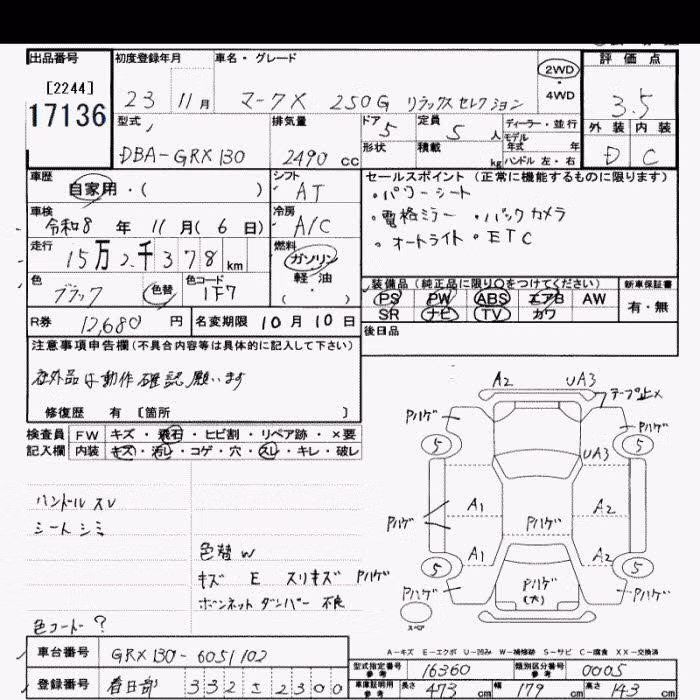 出品番号 初度登録年月 車名・グレード 評価点
[2244]
17136
23 11月 マークX 250G リラックスセレクション 2WD
4WD
3.5
型式 排気量 ドア 定員 ディーラー・並行 外装 内装
DBA-GRX130 2490 cc 5 5人 モデル年式 年
形状 積載 kg ハンドル 左・右 D C
車歴 シフト セールスポイント (正常に機能するものに限ります)
自家用・( ) AT ・パワーシート
車検 冷房 ・電格ミラー ・バックカメラ
令和8年 11月(6日) A/C ・オートライト ・ETC
走行 燃料
15万2千378km ガソリン
軽・油
( ・ )
色 色替 色コード
ブラック 1F7
装備品(純正品に限り○をつけてください) 新車保証書
PS PW ABS エアB AW 有・無
SR ナビ TV カワ
R券 12,680円 名変期限 10月10日 後日品
注意事項申告欄(不具合内容等は具体的に記入して下さい)
社外品は動作確認願います
修復歴 有 [箇所 ]
検査員 FW キズ・飛石・ヒビ割・リペア跡・×要
記入欄 内装 キズ・汚レ・コゲ・穴・スレ・キレ・破レ
ハンドルスレ
シートシミ
色替W
キズ E スリキズ Pハゲ
ボンネットダンパー 不良
色コード?
A2 UA3
テープ止×
Pハゲ Pハゲ
5 5
UA3
A1 A2
Pハゲ Pハゲ
A1 A2
5 5
Pハゲ Pハゲ(大) Pハゲ
スペア
A-キズ E-エクボ U-凹み W-補修跡 S-サビ C-腐食 XX-交換済
車台番号 GRX130-6051102
型式指定番号 参考 16360 類別区分番号 参考 0005
登録番号 春日部 332 さ 2300
車庫証明用 参考 長さ 473cm 幅 179cm 高さ 143cm